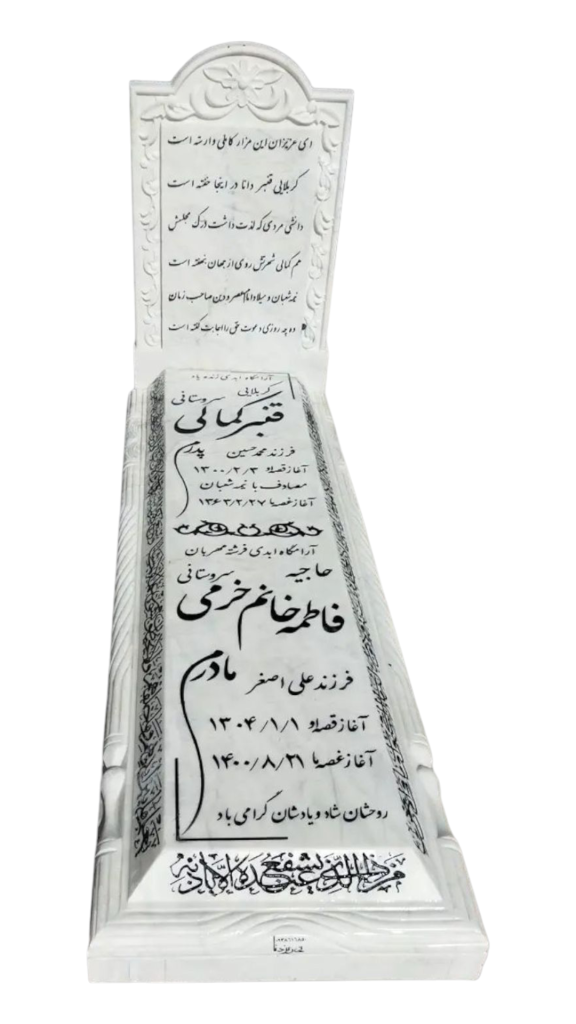 ای عزیزان این مزار کاملی وارسته است
کربلایی قنبر دانا در اینجا خفته است
دانشی مردی که لذت داشت درک مجلسش
هم کمالی شهرتش روی از جهان بنهفته است
نیمه شعبان و میلاد امام عصر و دین صاحب زمان
ده چه روزی دعوت حق را اجابت گفته است
آرامگاه ابدی زنده یاد
کربلایی
سروستانی
قنبر کمالی
فرزند محمد حسین
پدرم
آغاز قصه ۱۳۰۰/۲/۳
مصادف با نیمه شعبان
آغاز غصه ۱۳۶۳/۲/۲۷
آرامگاه ابدی فرشته مهربان
حاجیه
سروستانی
فاطمه خانم خرمی
فرزند علی اصغر
مادرم
آغاز قصه ۱۳۰۴/۱/۱
آغاز غصه ۱۴۰۰/۸/۲۱
روحشان شاد و یادشان گرامی باد
من ذا الذی یشفع عنده الا باذنه